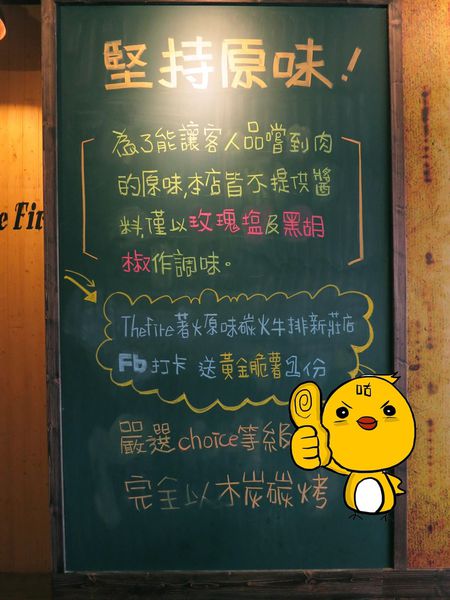 堅持原味!
為了能讓客人品嚐到肉
的原味,本店皆不提供醬
料,僅以玫瑰塩及黑胡
椒作調味。
Thefire著火原味碳火牛排新莊店
Fb打卡 送黃金脆薯1份
嚴選choice等級
完全以木炭碳烤
咕